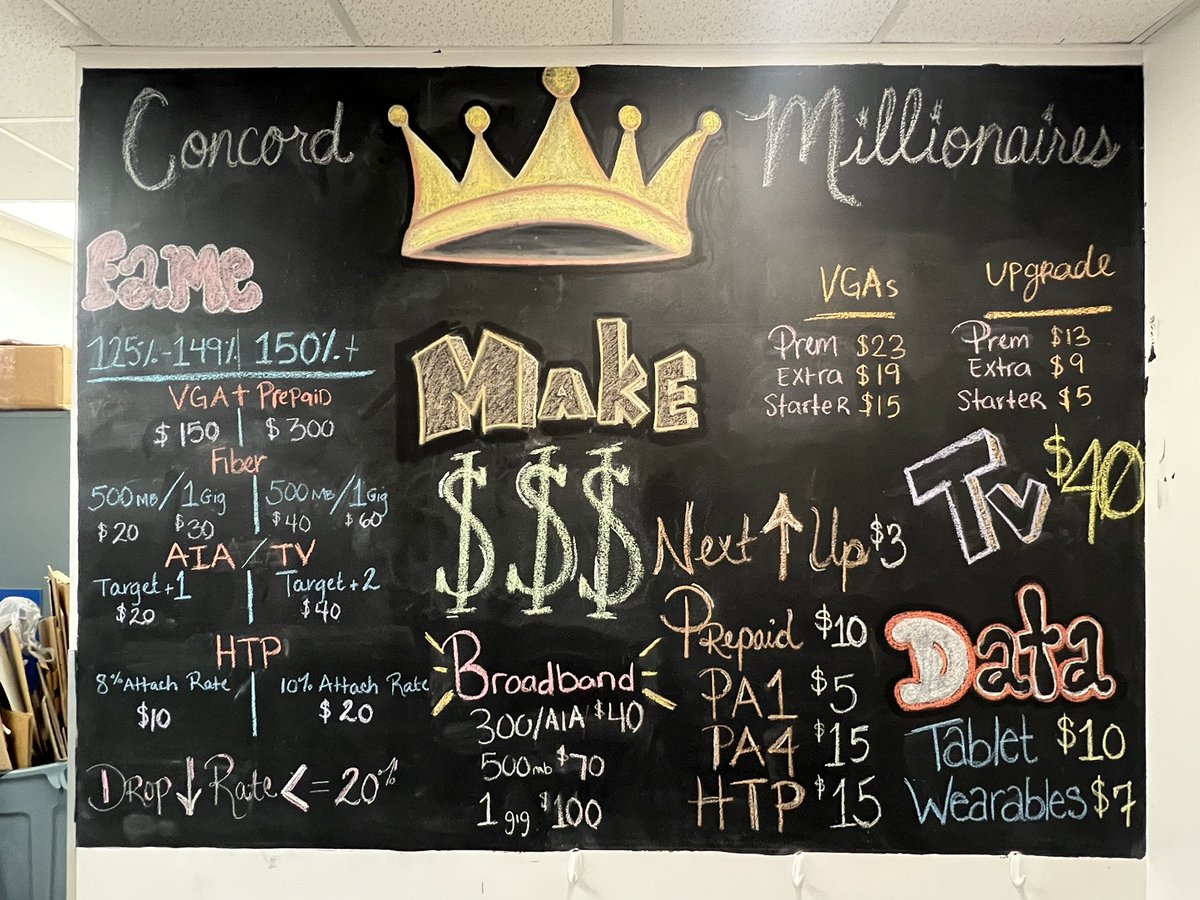 Concord Millionaires
FAME
125%-149% 150%+
VGA + Prepaid
$150 $300
Fiber
500MB/1Gig 500MB/1Gig
$20 $30 $40 $60
AIA / TV
Target+1 Target+2
$20 $40
HTP
8% Attach Rate 10% Attach Rate
$10 $20
Drop↓Rate <= 20%
Make
$$$
Broadband
300/AIA $40
500mb $70
1 gig $100
VGAs
Prem $23
Extra $19
Starter $15
Upgrade
Prem $13
Extra $9
Starter $5
TV $40
Next ↑ Up $3
Prepaid $10
PA1 $5
PA4 $15
HTP $15
Data
Tablet $10
Wearables $7